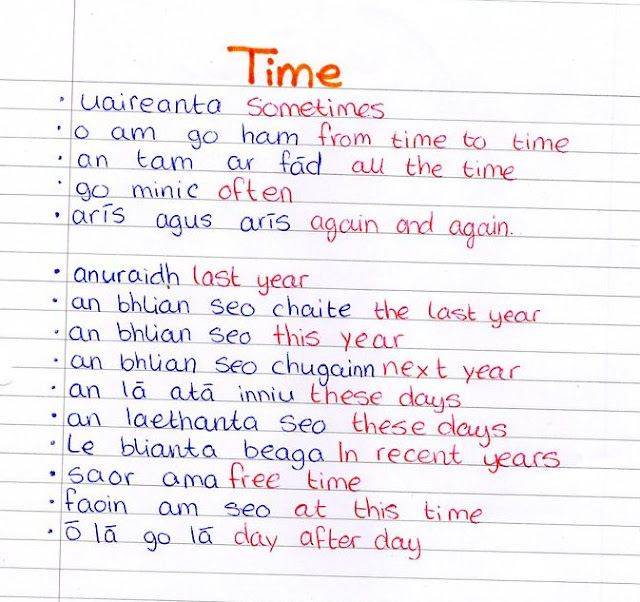 Time
· uaireanta sometimes
· o am go ham from time to time
· an tam ar fād all the time
· go minic often
· arīs agus arīs again and again.
· anuraidh last year
· an bhlian seo chaite the last year
· an bhlian seo this year
· an bhlian seo chugainn next year
· an lā atā inniu these days
· an laethanta seo these days
· Le blianta beaga In recent years
· saor ama free time
· faoin am seo at this time
· ō lā go lā day after day